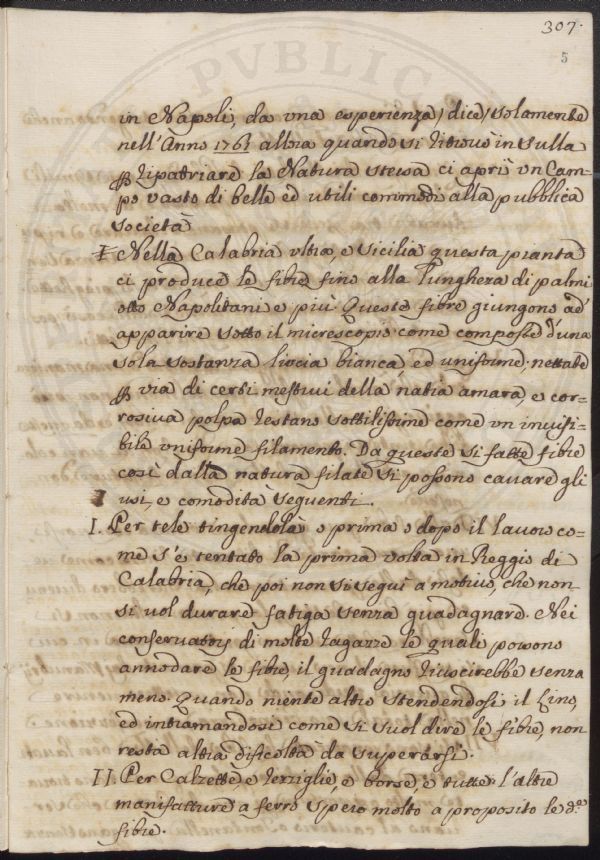 307.
5
in Napoli, da una esperienza / dice / solamente
nell'Anno 1761 allora quando si ritrovò in sulla
ripatriare la Natura stessa ci aprì un Cam=
po vasto di belle ed utili commodi alla pubblica
società
Nella Calabria ultra, e Sicilia questa pianta
ci produce le fibre fino alla lunghezza di palmi
otto Napolitani e più Queste fibre giungono ad'
apparire sotto il microscopio come composte d'una
sola sostanza liscia bianca, ed uniforme: nettate
via di certi mestrui della natia amara, e cor=
rosiva polpa restano sottilissime come un invisi=
bile uniforme filamento. Da queste sì fatte fibre
così dalla natura filate si possono cavare gli
usi, e comodità seguenti.
I. Per tele tingendola o prima o dopo il lavoro co=
me s'è tentato la prima volta in Reggio di
Calabria, che poi non si seguì a motivo, che non
si vol durare fatiga senza guadagnare. Nei
conservatorj di molte ragazze le quali possono
annodare le fibre, il guadagno riuscirebbe senza
meno. Quando niente altro stendendosi il Lino,
ed intramandosi come si suol dire le fibre, non
resta altra dificoltà da superarsi.
II. Per Calzette, e terziglie, e borse, e tutte l'altre
manifatture a ferro spero molto a proposito le d.e
fibre.